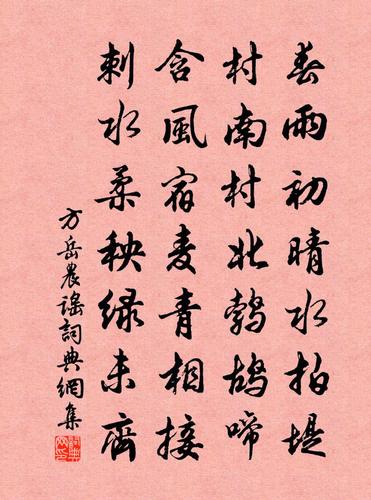 春雨初晴水拍堤
村南村北鹁鸪啼
含風宿麦青相接
刺水柔秧绿未齊
方岳農謠詞典網集